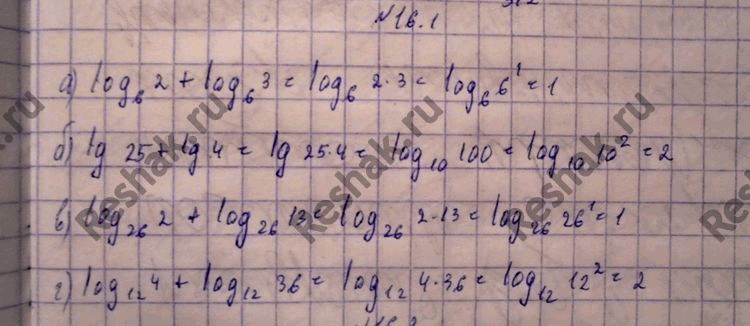 №16.1
а) log₆ 2 + log₆ 3 = log₆ 2·3 = log₆ 6¹ = 1
б) lg 25 + lg 4 = lg 25·4 = log₁₀ 100 = log₁₀ 10² = 2
в) log₂₆ 2 + log₂₆ 13 = log₂₆ 2·13 = log₂₆ 26¹ = 1
г) log₁₂ 4 + log₁₂ 36 = log₁₂ 4·36 = log₁₂ 12² = 2
Reshak.ru
Reshak.ru
Reshak.ru
Reshak.ru